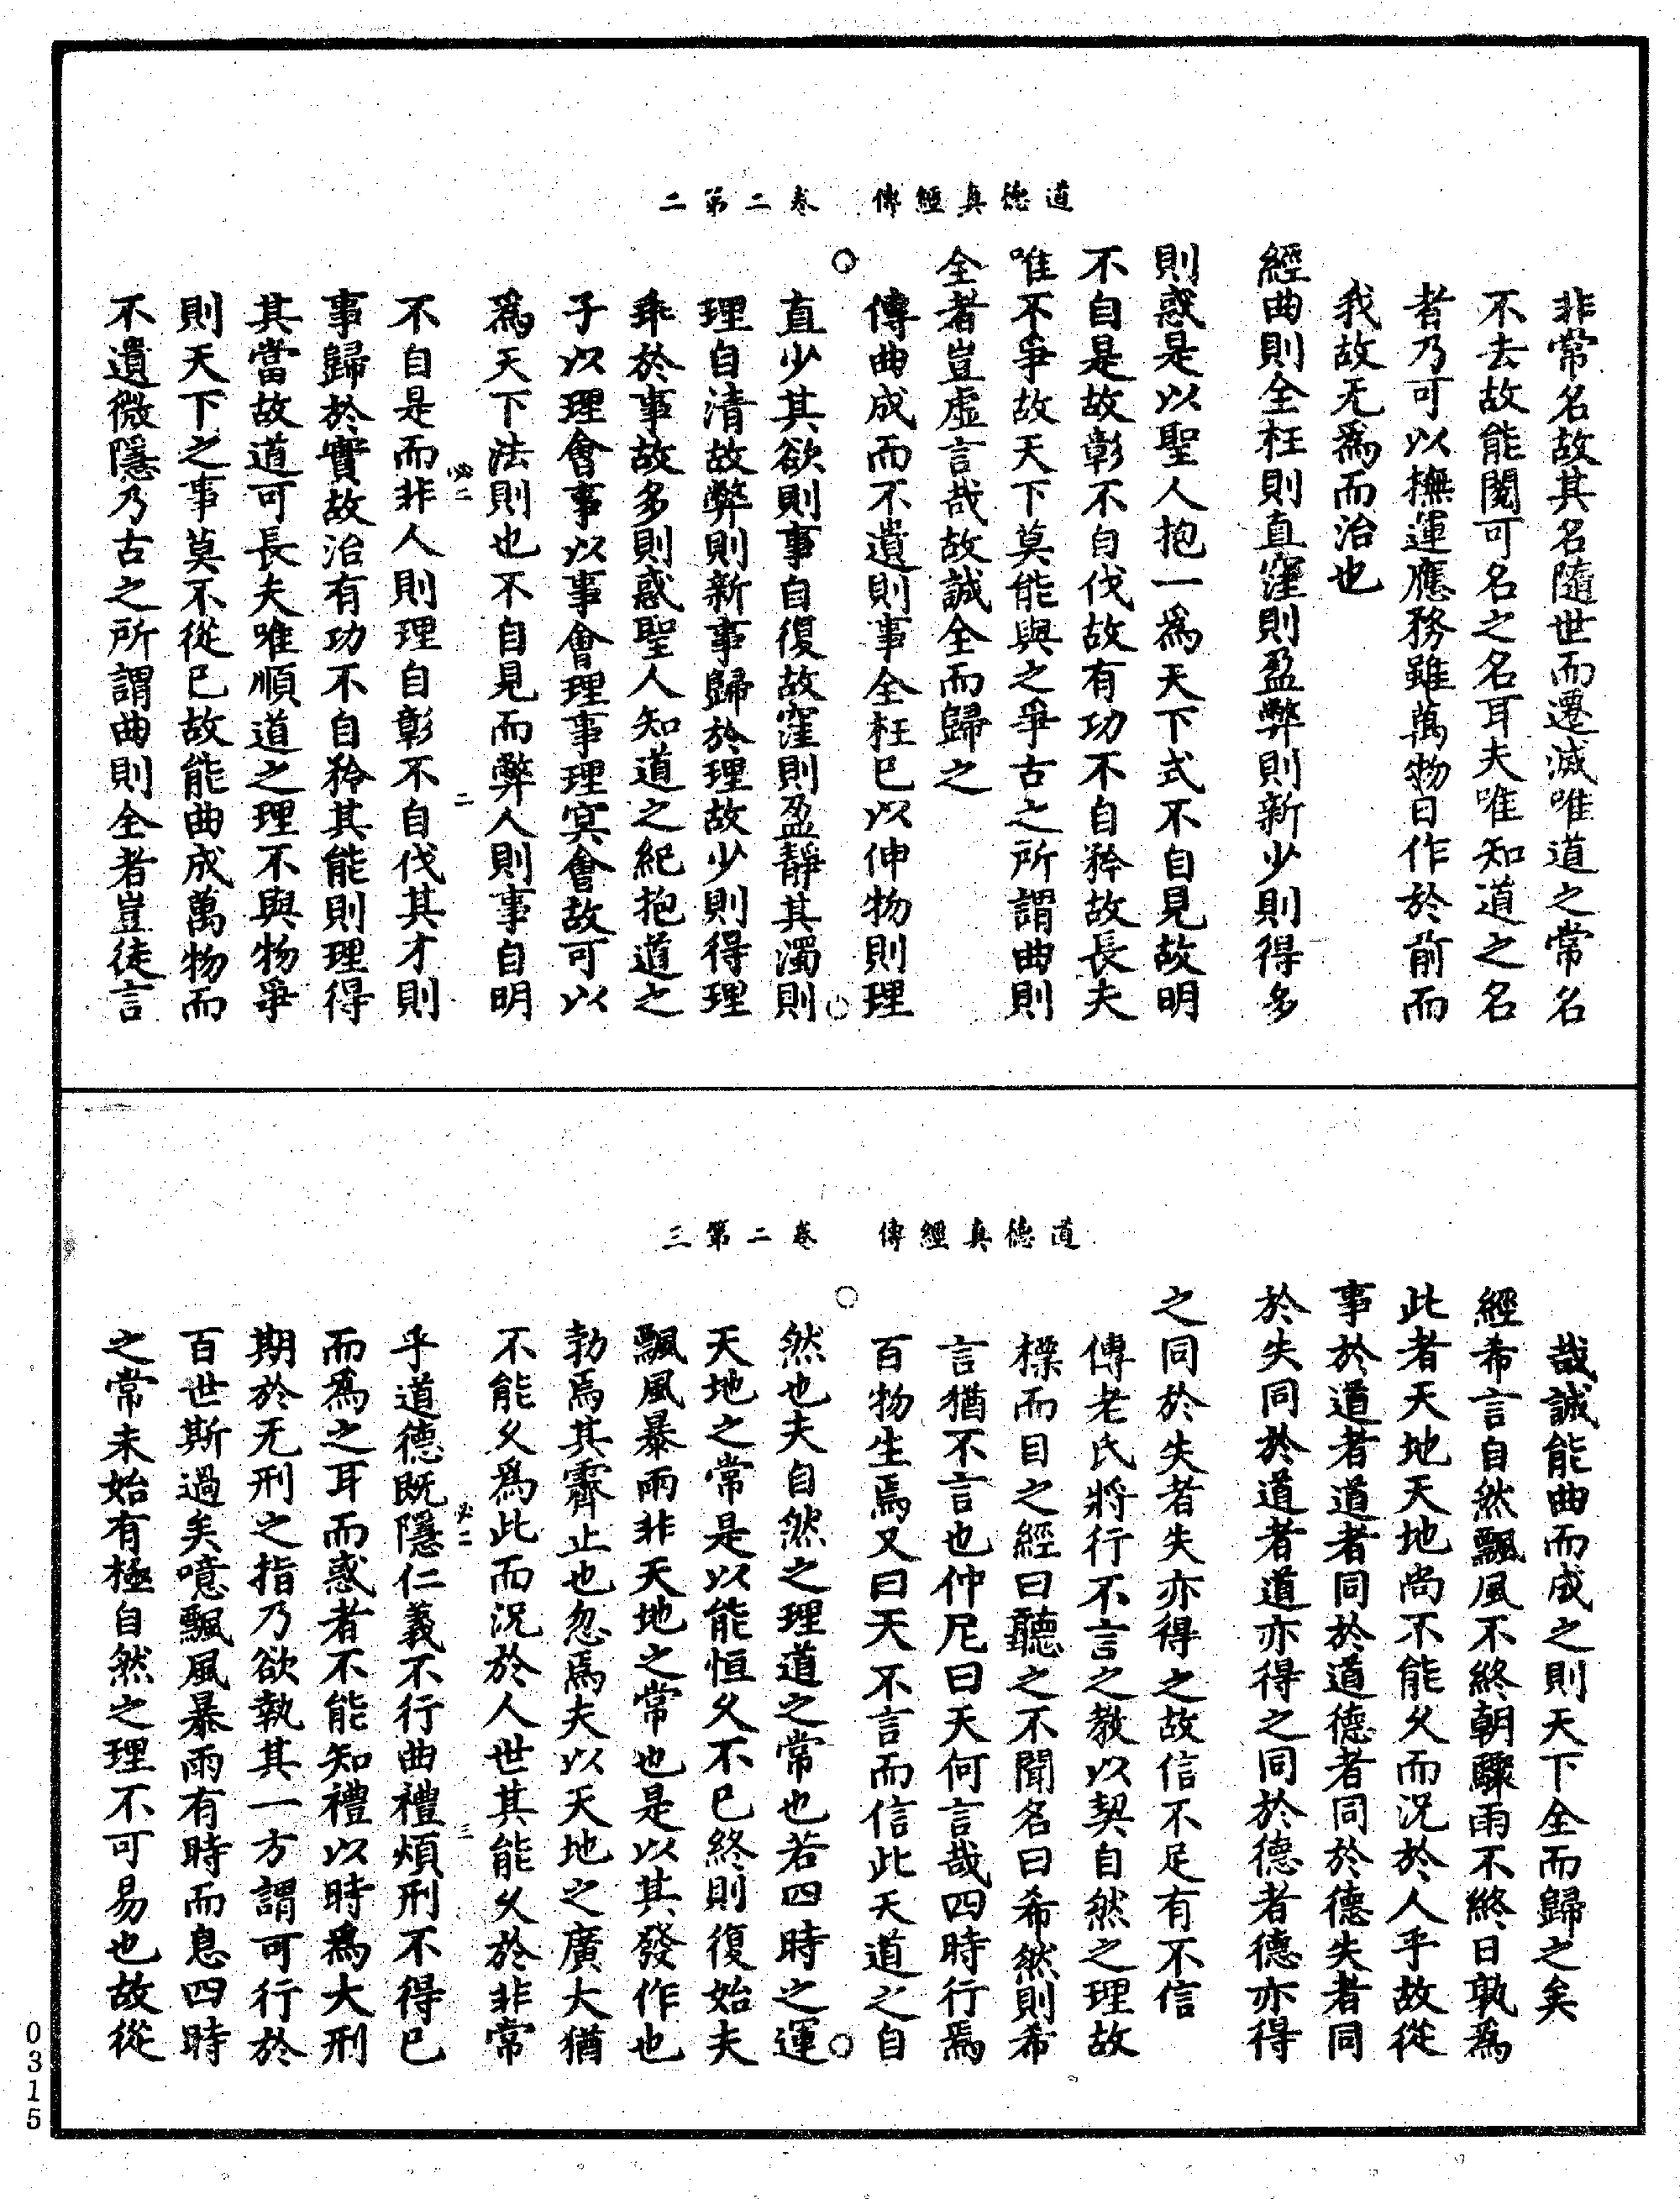 道德真經傳　卷二第二
非常名故其名隨世而遷滅唯道之常名
不去故能閱可名之名耳夫唯知道之名
者乃可以撫運應務雖萬物日作於前而
我故无爲而治也
經曲則全枉則直窪則盈弊則新少則得多
則惑是以聖人抱一爲天下式不自見故明
不自是故彰不自伐故有功不自矜故長夫
唯不爭故天下莫能與之爭古之所謂曲則
全者豈虛言哉故誠全而歸之
傳曲成而不遺則事全枉已以伸物則理
直少其欲則事自復故窪則盈靜其濁則
理自清故弊則新事歸於理故少則得理
乖於事故多則惑聖人知道之紀抱道之
子以理會事以事會理事理冥會故可以
爲天下法則也不自見而弊人則事自明
必二　二
不自是而非人則理自彰不自伐其才則
事歸於實故治有功不自矜其能則理得
其當故道可長夫唯順道之理不與物爭
則天下之事莫不從已故能曲成萬物而
不遺微隱乃古之所謂曲則全者豈徒言
道德真經傳　卷二第三
哉誠能曲而成之則天下全而歸之矣
經希言自然飄風不終朝驟雨不終日孰爲
此者天地天地尚不能久而況於人乎故從
事於道者道者同於道德者同於德失者同
於失同於道者道亦得之同於德者德亦得
之同於失者失亦得之故信不足有不信
傳老氏將行不言之教以契自然之理故
標而目之經曰聽之不聞名曰希然則希
言猶不言也仲尼曰天何言哉四時行焉
百物生焉又曰天不言而信此天道之自
然也夫自然之理道之常也若四時之運
天地之常是以能恒久不已終則復始夫
飄風暴雨非天地之常也是以其發作也
勃焉其霽止也忽焉夫以天地之廣大猶
不能久爲此而況於人世其能久於非常
必二　三
乎道德既隱仁義不行曲禮煩刑不得已
而爲之耳而惑者不能知禮以時爲大刑
期於无刑之指乃欲執其一方謂可行於
百世斯過矣噫飄風暴雨有時而息四時
之常未始有極自然之理不可易也故從
0315